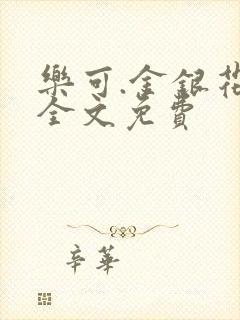 樂可.金銀花
全文免費
辛華